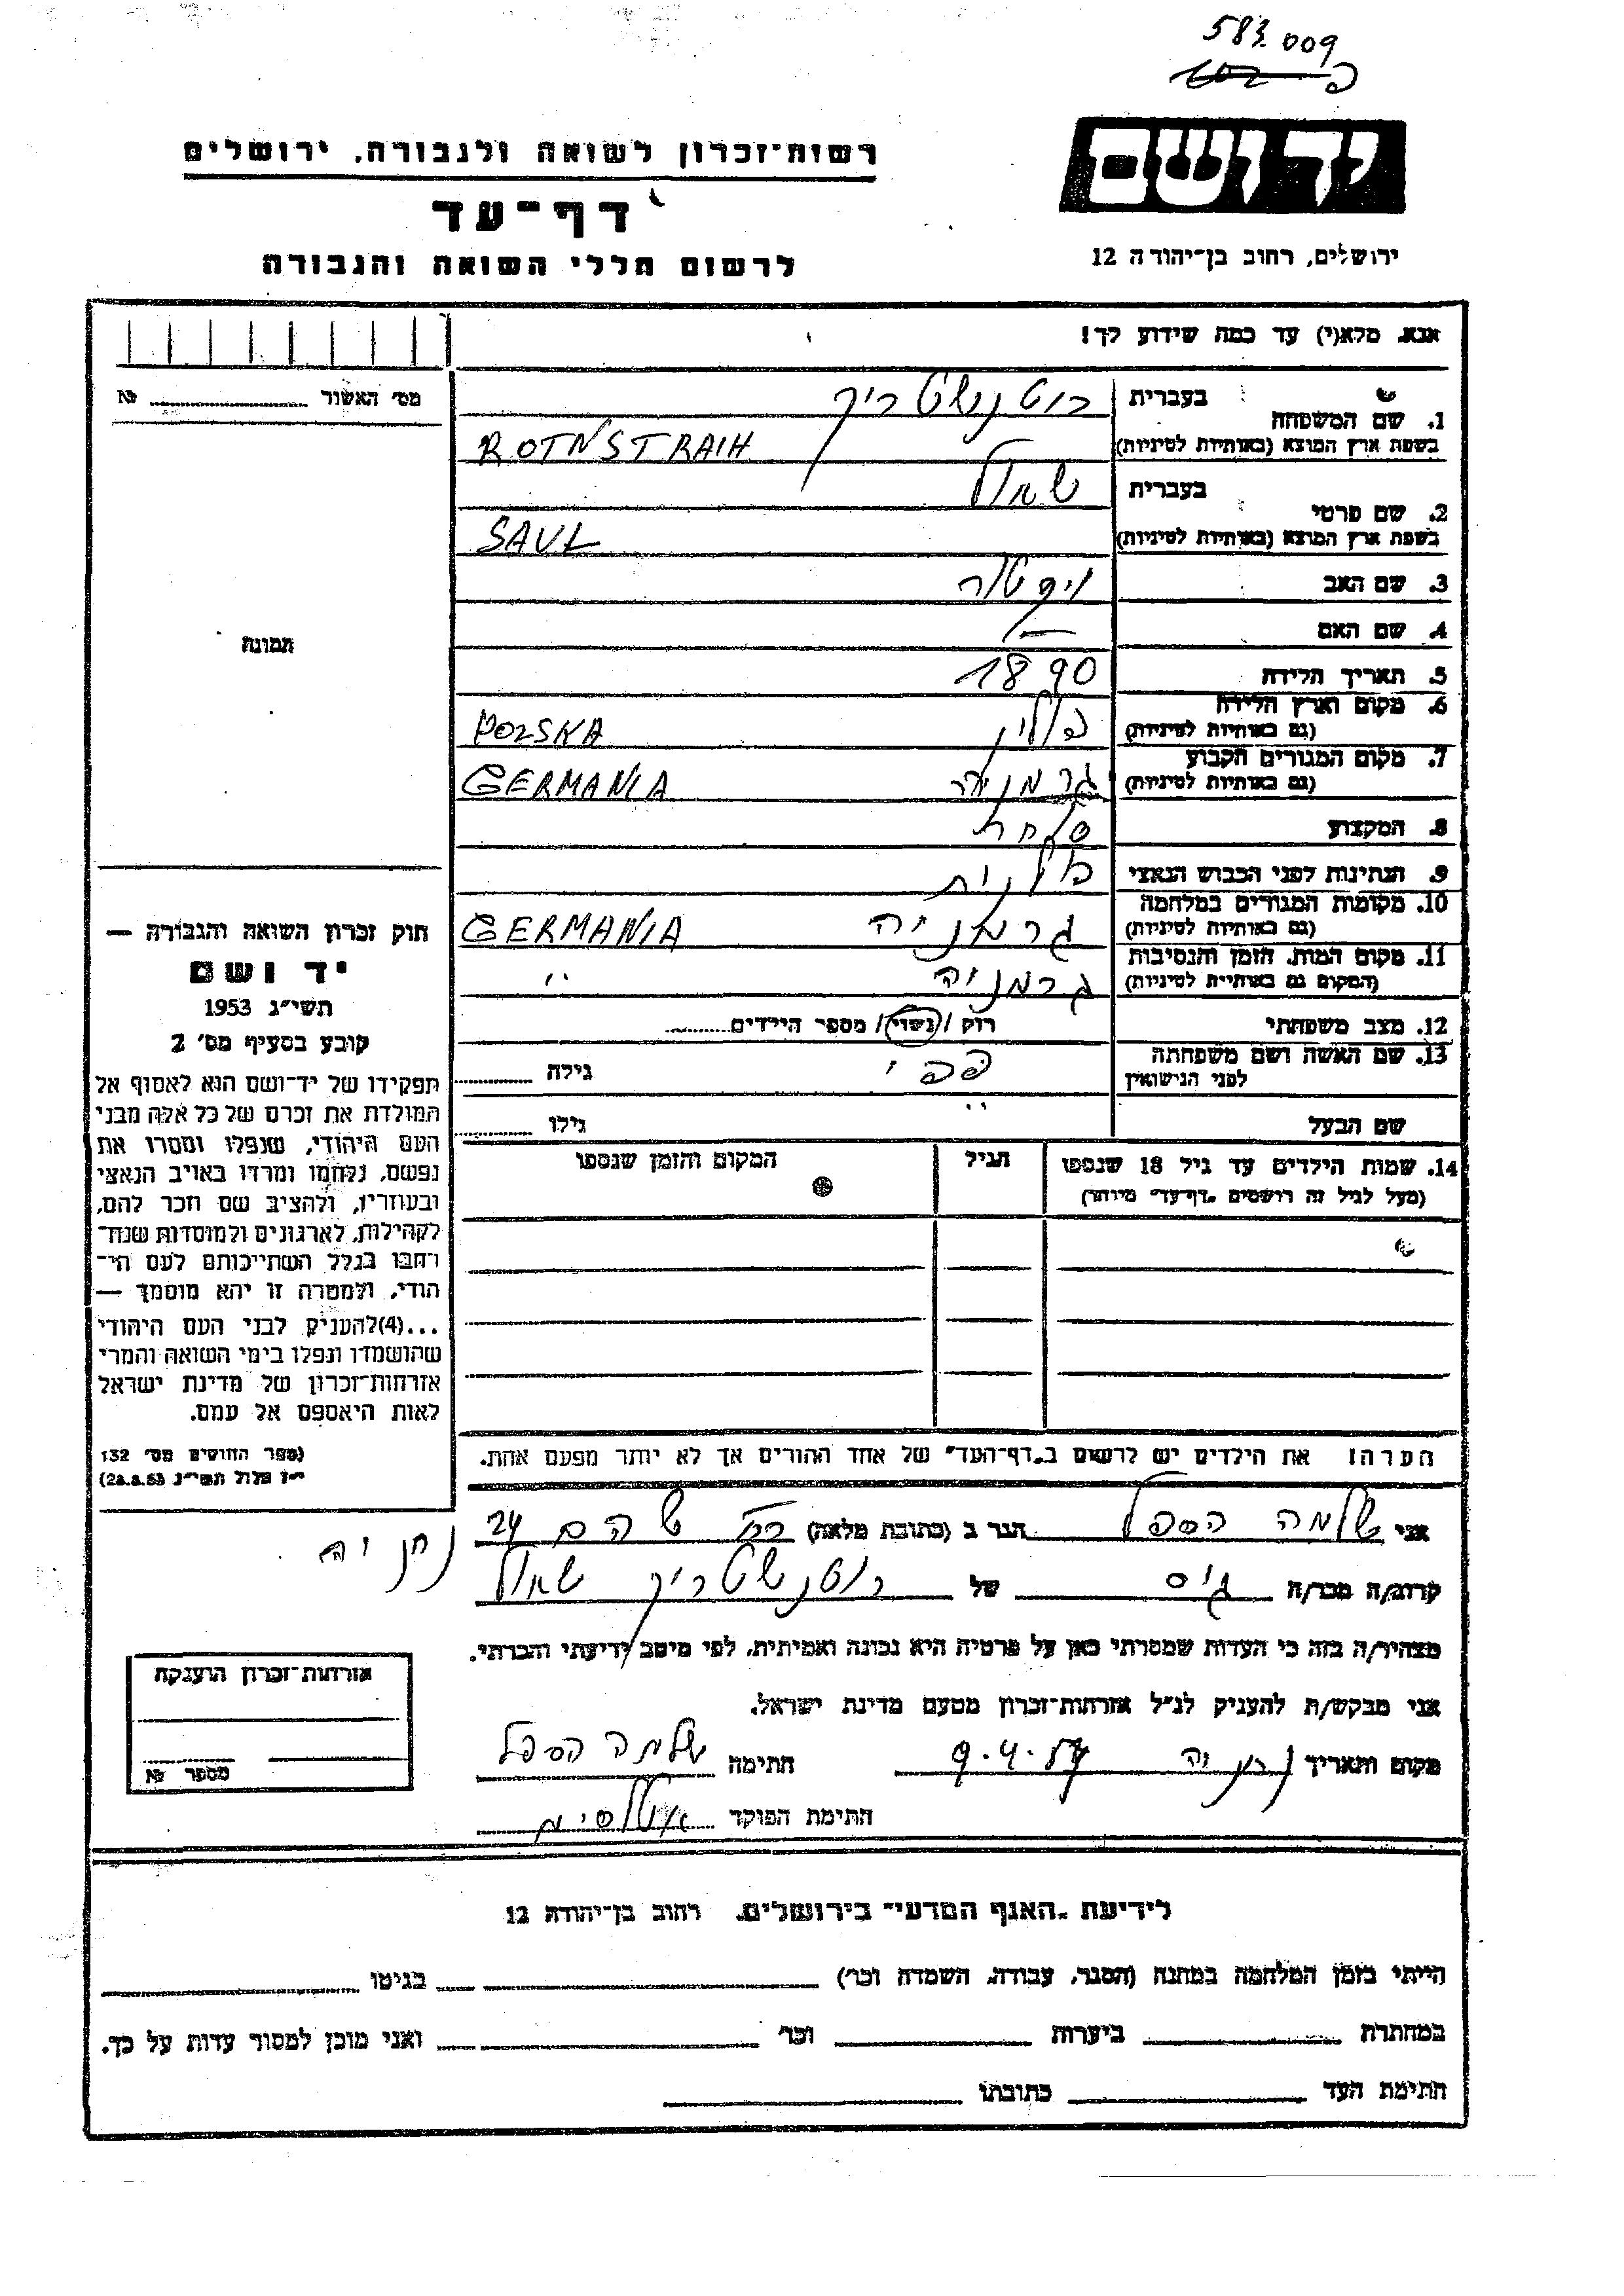 583.009
יד ושם
רשות־זכרון לשואה ולגבורה, ירושלים
דף־עד
לרשום חללי השואה והגבורה
ירושלים, רחוב בן־יהודה 12
אנא, מלא(י) עד כמה שידוע לך!
מס׳ האשור № 
1. שם המשפחה בעברית רוטנשטריך
בשפת ארץ המוצא (באותיות לטיניות) ROTNSTRAIH
2. שם פרטי בעברית שאול
בשפת ארץ המוצא (באותיות לטיניות) SAUL
3. שם האב ויקטור
4. שם האם —
תמונה
5. תאריך הלידה 1890
6. מקום וארץ הלידה (גם באותיות לטיניות) פולין POLSKA
7. מקום המגורים הקבוע (גם באותיות לטיניות) גרמניה GERMANIA
8. המקצוע סוחר
9. הנתינות לפני הכבוש הנאצי פולנית
10. מקומות המגורים במלחמה (גם באותיות לטיניות) גרמניה GERMANIA
11. מקום המות, הזמן והנסיבות (המקום גם באותיות לטיניות) גרמניה "
12. מצב משפחתי רווק / נשוי / מספר הילדים
13. שם האשה ושם משפחתה לפני הנישואין פפי גילה
שם הבעל " גילו
14. שמות הילדים עד גיל 18 שנספו הגיל המקום והזמן שנספו
(מעל לגיל זה רושמים „דף־עד״ מיוחד)
חוק זכרון השואה והגבורה —
יד ושם
תשי״ג 1953
קובע בסעיף מס׳ 2
תפקידו של יד־ושם הוא לאסוף אל
המולדת את זכרם של כל אלה מבני
העם היהודי, שנפלו ומסרו את
נפשם, נלחמו ומרדו באויב הנאצי
ובעוזריו, ולהציב שם וזכר להם,
לקהילות, לארגונים ולמוסדות שנח־
רבו בגלל השתייכותם לעם הי־
הודי, ולמטרה זו יהא מוסמך —
...(4)להעניק לבני העם היהודי
שהושמדו ונפלו בימי השואה והמרי
אזרחות־זכרון של מדינת ישראל
לאות היאספם אל עמם.
(ספר החוקים מס׳ 132
י״ז אלול תשי״ג 28.8.53)
הערה! את הילדים יש לרשום ב„דף־העד״ של אחד ההורים אך לא יותר מפעם אחת.
אני שלמה הספל הגר ב (כתובת מלאה) רח׳ שהם 24 נתניה
קרוב/ה מכר/ה גיס של רוטנשטריך שאול
מצהיר/ה בזה כי העדות שמסרתי כאן על פרטיה היא נכונה ואמיתית, לפי מיטב ידיעתי והכרתי.
אני מבקש/ת להעניק לנ״ל אזרחות־זכרון מטעם מדינת ישראל.
מקום ותאריך נתניה 9.4.57 חתימה שלמה הספל
חתימת הפוקד
אזרחות־זכרון הוענקה
מספר №
לידיעת „האגף המדעי״ בירושלים, רחוב בן־יהודה 12
הייתי בזמן המלחמה במחנה (הסגר, עבודה, השמדה וכו׳) בגיטו
במחתרת ביערות וכו׳ ואני מוכן למסור עדות על כך.
חתימת העד כתובתו